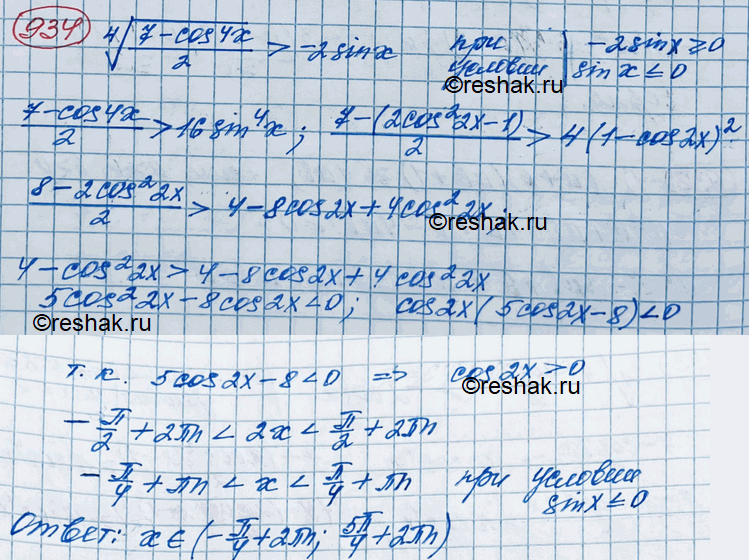 934 ⁴√((7-cos4x)/2) > -2sinx при условии | -2sinx ≥ 0
sinx ≤ 0
©reshak.ru
(7-cos4x)/2 > 16sin⁴x ; (7-(2cos²2x-1))/2 > 4(1-cos2x)²
©reshak.ru
(8-2cos²2x)/2 > 4-8cos2x+4cos²2x.
4-cos²2x > 4-8cos2x+4cos²2x
5cos²2x-8cos2x<0; cos2x(5cos2x-8)<0
©reshak.ru
©reshak.ru
т.к. 5cos2x-8<0 => cos2x>0
©reshak.ru
-π/2+2πn < 2x < π/2+2πn
-π/4+πn < x < π/4+πn при условии
sinx ≤ 0
Ответ: x∈(-π/4+2πn; 5π/4+2πn)
©reshak.ru